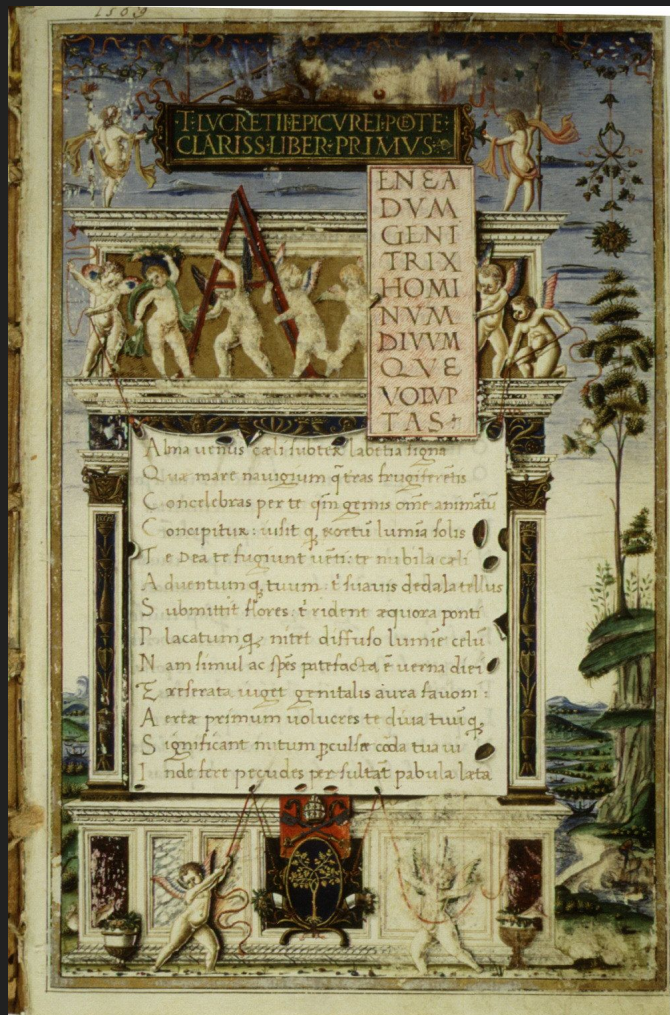 1569
T·LVCRETII·EPICVREI·POTE·
CLARISS·LIBER·PRIMVS·
ENEA
DVM
GENI
TRIX
HOMI
NVM
DIVVM
QVE
VOLVP
TAS
Alma uenus cæli subter labētia signa
Quæ mare nauigium q̄ tras frugiferētis
Concelebras per te qm̄ genus om̄e animātū
Concipitur: uisit q̨ exortū lumīa solis
Te Dea te fugiunt uēti: te nubila cæli
Aduentumq̨ tuum: t̄ suauis dedala tellus
Submittit flores: t̄ rident æquora ponti
Placatumq̨ nitet diffuso lumīe celū
Nam simul ac spēs patefacta ē uerna diei
Exreserata uiget genitalis aura fauoni:
Aereæ primum uolucres te diua tuūq̨
Significant initum p̱culsæ coda tua ui
Inde fere pecudes per sultāt pabula læta